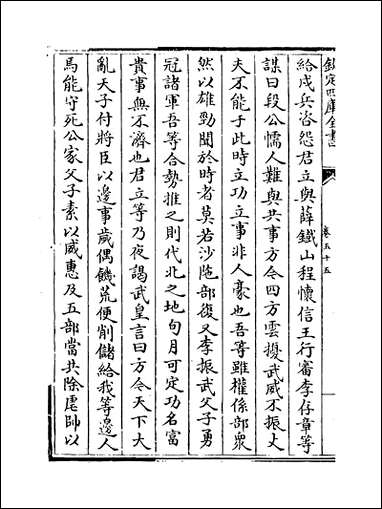 欽定四庫全書
卷五十五
給戍兵咨怨君立與薛鐵山程懷信王行審李存章等
謀曰段公懦人難與共事方今四方雲擾武威不振丈
夫不能于此時立功立事非人豪也吾等雖權係部衆
然以雄勁聞於時者莫若沙陁部復又李振武父子勇
冠諸軍吾等合勢推之則代北之地旬月可定功名富
貴事無不濟也君立等乃夜謁武皇言曰方今天下大
亂天子付將臣以邊事歲偶饑荒便削儲給我等邊人
焉能守死公家父子素以威惠及五部當共除虐帥以